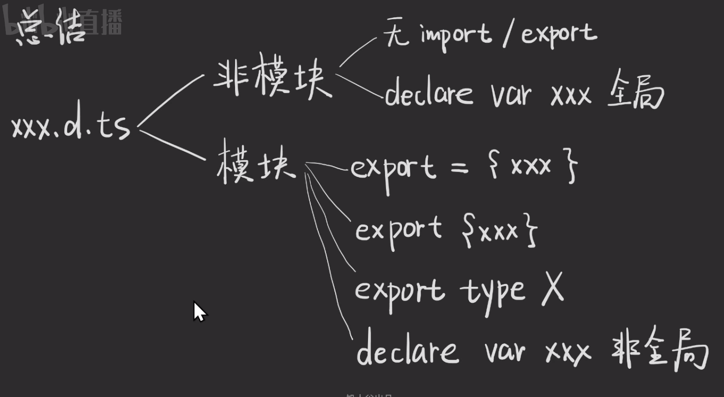 总结
xxx.d.ts
非模块
无 import / export
declare var xxx 全局
模块
export = { xxx }
export {xxx}
export type X
declare var xxx 非全局